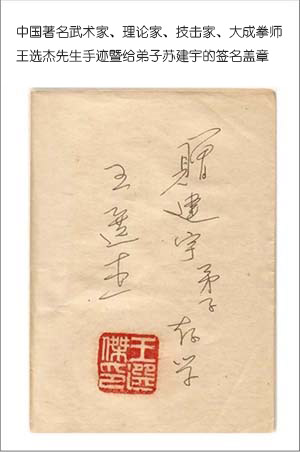 中国著名武术家、理论家、技击家、大成拳师
王选杰先生手迹暨给弟子苏建宇的签名盖章
贈建宇弟子存学
王選杰
王選
傑印